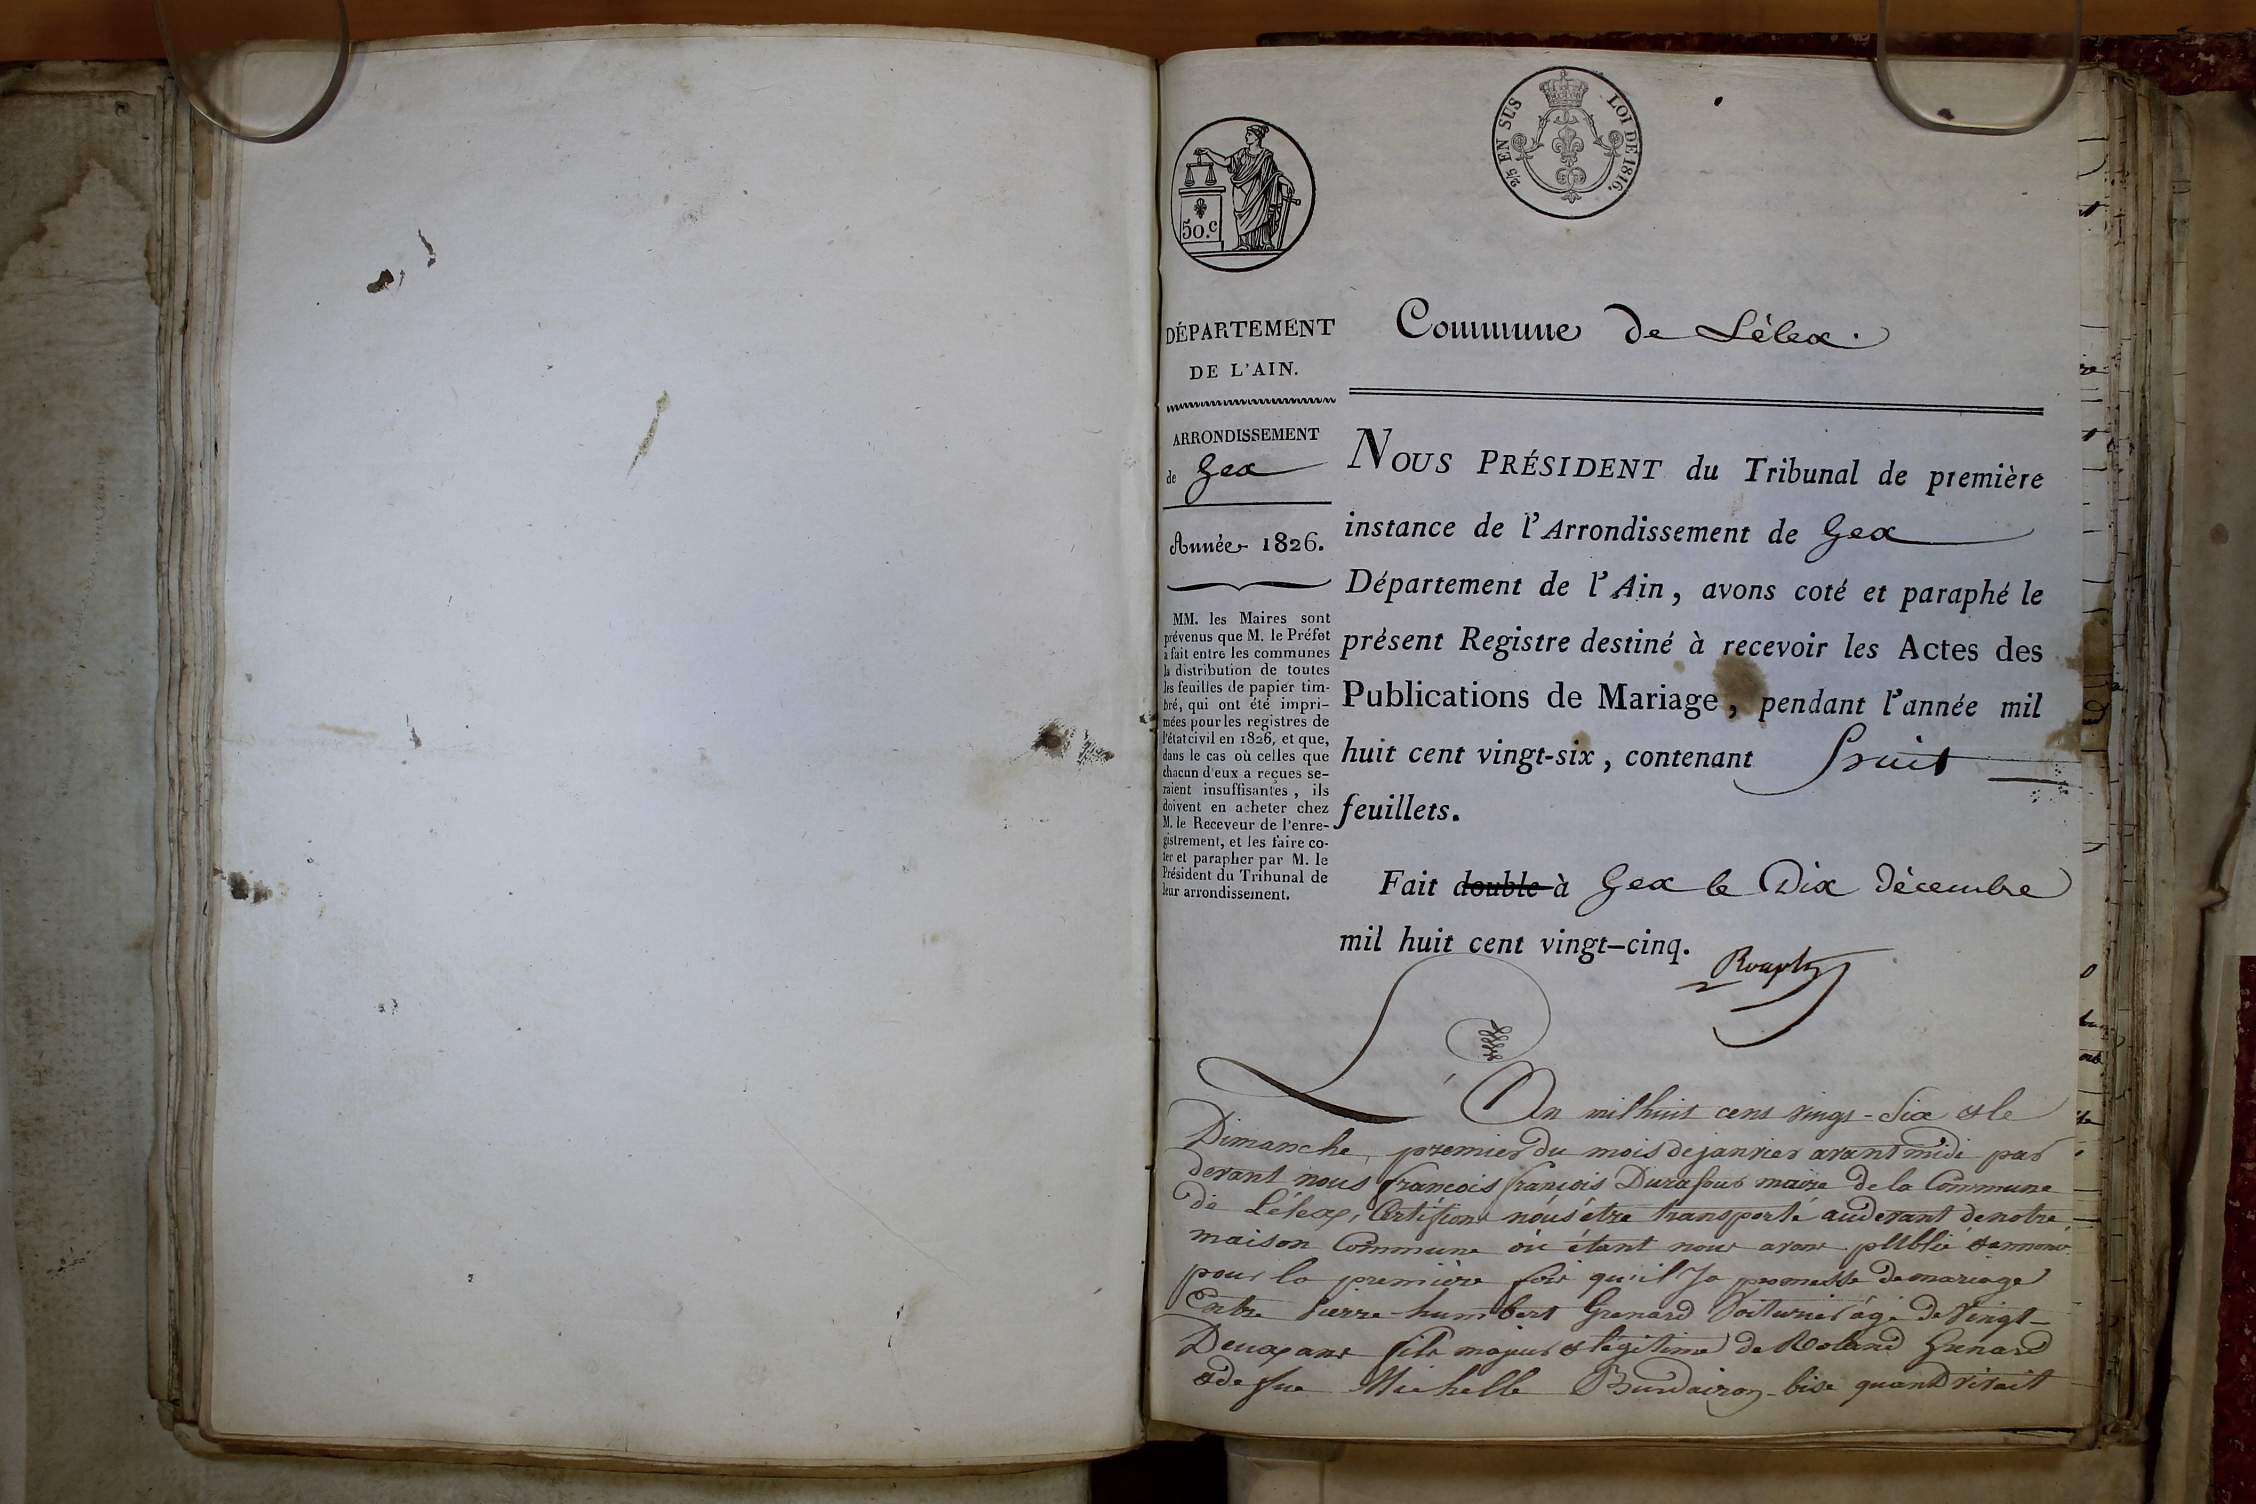 2/5 EN SUS LOI DE 1816.
50.c
DÉPARTEMENT
DE L'AIN.
Commune de Lélex.
ARRONDISSEMENT
de Gex
Année 1826.
MM. les Maires sont
prévenus que M. le Préfet
a fait entre les communes
la distribution de toutes
les feuilles de papier tim-
bré, qui ont été impri-
mées pour les registres de
l'état civil en 1826, et que,
dans le cas où celles que
chacun d'eux a reçues se-
raient insuffisantes, ils
doivent en acheter chez
M. le Receveur de l'enre-
gistrement, et les faire co-
ter et parapher par M. le
Président du Tribunal de
leur arrondissement.
NOUS PRÉSIDENT du Tribunal de première
instance de l'Arrondissement de Gex
Département de l'Ain, avons coté et paraphé le
présent Registre destiné à recevoir les Actes des
Publications de Mariage, pendant l'année mil
huit cent vingt-six, contenant huit
feuillets.
Fait double à Gex le Dix Décembre
mil huit cent vingt-cinq.
L'An mil huit cens vingt-Six & le
Dimanche, premier du mois de janvier avant midi par
devant nous françois françois Durafour maire de la Commune
de Lélex, Certifions nous être transporté audevant de notre
maison Commune où étant nous avons publié & annoncé
pour la première fois qu'il Ja promesse de mariage
Entre Pierre-humbert Grenard Voiturier âgé de Vingt-
Deux ans fils majeur & légitime de Roland Grenard
& de feue Michelle Burdairon-bise quand vivait